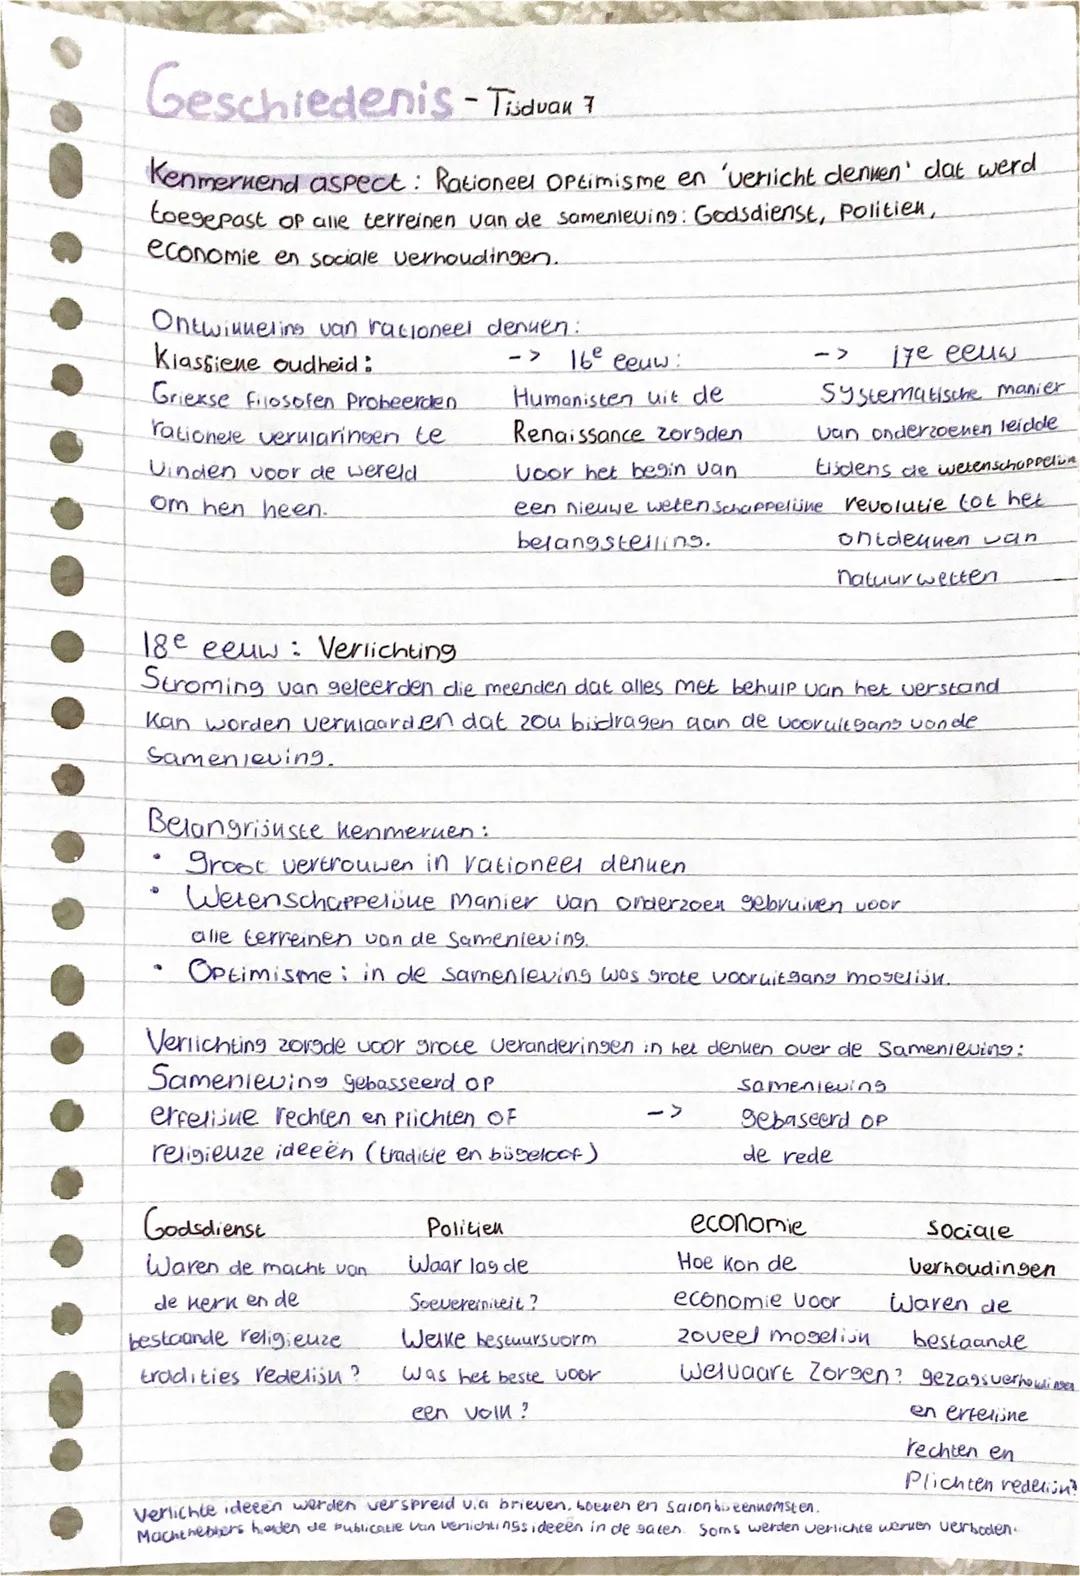 Geschiedenis - Tijdvak 7
Kenmerkend aspect: Rationeel optimisme en 'verlicht denken' dat werd
toegepast op alle terreinen van de samenleving: Godsdienst, Politiek,
economie en sociale verhoudingen.
Ontwikkeling van rationeel denken:
Klassieke oudheid:
Griekse filosofen probeerden
rationele verklaringen te
vinden voor de wereld
om hen heen.
-> 16e eeuw:
Humanisten uit de
Renaissance zorgden
voor het begin van
een nieuwe wetenschappelijke
belangstelling.
-> 17e eeuw
Systematische manier
van onderzoeken leidde
tijdens de wetenschappelijk
revolutie tot het
ontdekken van
natuurwetten
18e eeuw: Verlichting
Stroming van geleerden die meenden dat alles met behulp van het verstand
kan worden verklaard en dat zou bijdragen aan de vooruitgang van de
samenleving.
Belangrijkste kenmerken:
• groot vertrouwen in rationeel denken
• Wetenschappelijke manier van onderzoek gebruiken voor
alle terreinen van de samenleving.
• Optimisme: in de samenleving was grote vooruitgang mogelijk.
Verlichting zorgde voor grote veranderingen in het denken over de samenleving:
Samenleving gebasseerd op
erfelijke rechten en plichten of
religieuze ideeën (traditie en bijgeloof)
->
samenleving
gebaseerd op
de rede
Godsdienst
Waren de macht van
de kerk en de
bestaande religieuze
tradities redelijk?
Politiek
Waar lag de
Soevereiniteit?
Welke bestuursvorm
Was het beste voor
een volk?
economie
Hoe kon de
economie voor
zoveel mogelijk
welvaart zorgen?
sociale
verhoudingen
Waren de
bestaande
gezagsverhoudingen
en erfelijke
rechten en
Plichten redelijk?
Verlichte ideeën werden verspreid via brieven, boeken en salonbijeenkomsten.
Machthebbers hielden de publicatie van verlichtingsideeën in de gaten. Soms werden verlichte werken verboden.